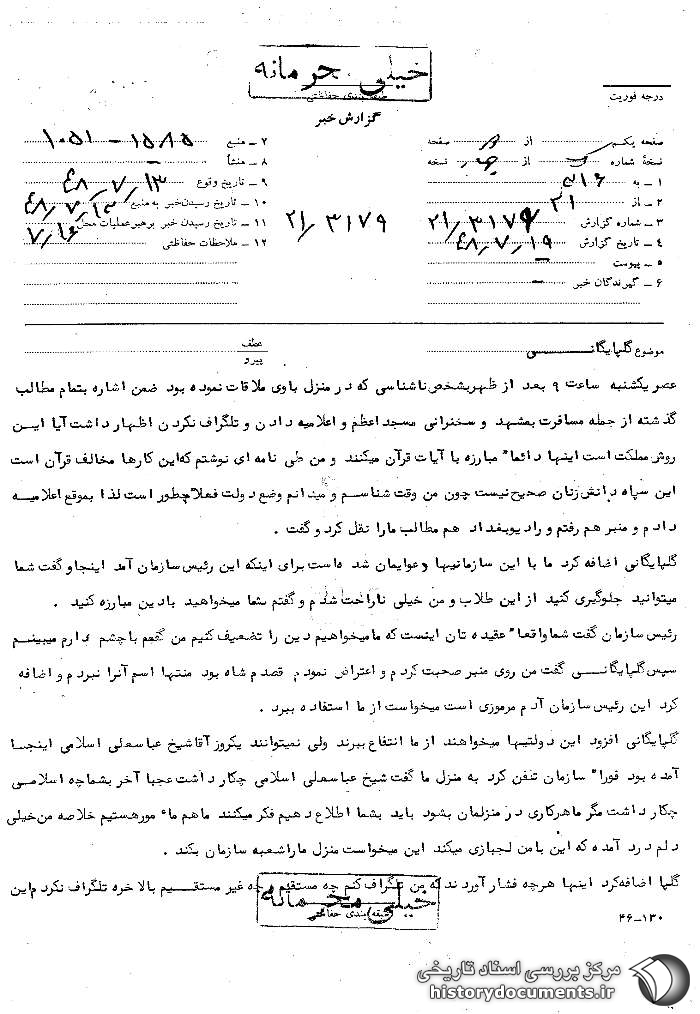 خیلی محرمانه
طبقه‌بندی حفاظتی
درجه فوریت
گزارش خبر
صفحه یکم از دو صفحه
نسخهٔ شماره از نسخه
۱ ـ به ۳۱۶
۲ ـ از ۲۱
۳ ـ شماره گزارش ۲۱/۳۱۷۹
۴ ـ تاریخ گزارش ۴۸/۷/۱۹
۵ ـ پیوست
۶ ـ گیرندگان خبر
۷ ـ منبع ۱۵۸۵ - ۱۰۵۱
۸ ـ منشأ
۹ ـ تاریخ وقوع ۴۸/۷/۱۳
۱۰ ـ تاریخ رسیدن خبر به منبع ۴۸/۷/۱۳
۱۱ ـ تاریخ رسیدن خبر برهبر عملیات محل ۷/۱۶
۱۲ ـ ملاحظات حفاظتی
۲۱/۳۱۷۹
موضوع گلپایگانــــی
عطف
پیرو
عصر یکشنبه ساعت ۹ بعد از ظهر بشخص ناشناسی که در منزل باوی ملاقات نموده بود ضمن اشاره بتمام مطالب
گذشته از جمله مسافرت بمشهد و سخنرانی مسجد اعظم و اعلامیه دادن و تلگراف نکردن اظهار داشت آیا ایــن
روش مملکت است اینها دائماً مبارزه با آیات قرآن میکنند و من طی نامه ای نوشتم که این کارها مخالف قرآن است
این سپاه دانش زنان صحیح نیست چون من وقت شناســم و میدانم وضع دولت فعلاً چطور است لذا بموقع اعلامیــه
دادم و منبر هم رفتم و رادیو بغداد هم مطالب مارا نقل کرد و گفت .
گلپایگانی اضافه کرد ما با این سازمانیها دعوایمان شده است برای اینکه این رئیس سازمان آمد اینجا و گفت شما
میتوانید جلوگیری کنید از این طلاب و من خیلی ناراحت شدم و گفتم شما میخواهید بادین مبارزه کنید .
رئیس سازمان گفت شما واقعاً عقیده تان اینست که ما میخواهیم دین را تضعیف کنیم من گفتم با چشم دارم میبینــم
سپس گلپایگانــــی گفت من روی منبر صحبت کردم و اعتراض نمودم قصدم شاه بود منتها اسم آنرا نبردم و اضافه
کرد این رئیس سازمان آدم مرموزی است میخواست از ما استفاده ببرد .
گلپایگانی افزود این دولتیها میخواهند از ما انتفاع ببرند ولی نمیتوانند یکروز آقا شیخ عباسعلی اسلامی اینجــا
آمده بود فوراً سازمان تلفن کرد به منزل ما گفت شیخ عباسعلی اسلامی چکار داشت عجبا آخر بشما چه اسلامــی
چکار داشت مگر ما هرکاری در منزلمان بشود باید بشما اطلاع دهیم فکر میکنند ما هم مأمور هستیم خلاصه من خیلی
دلم درد آمده که این بامن لجبازی میکند این میخواست منزل مارا شعبه سازمان بکند .
گلپا اضافه کرد اینها هرچه فشار آوردند که من تلگراف کنم چه مستقیم و چه غیر مستقــیم بالاخره تلگراف نکردم این
خیلی محرمانه
طبقه‌بندی حفاظتی
۴۶ــ۱۳۰
مرکز بررسی اسناد تاریخی
historydocuments.ir